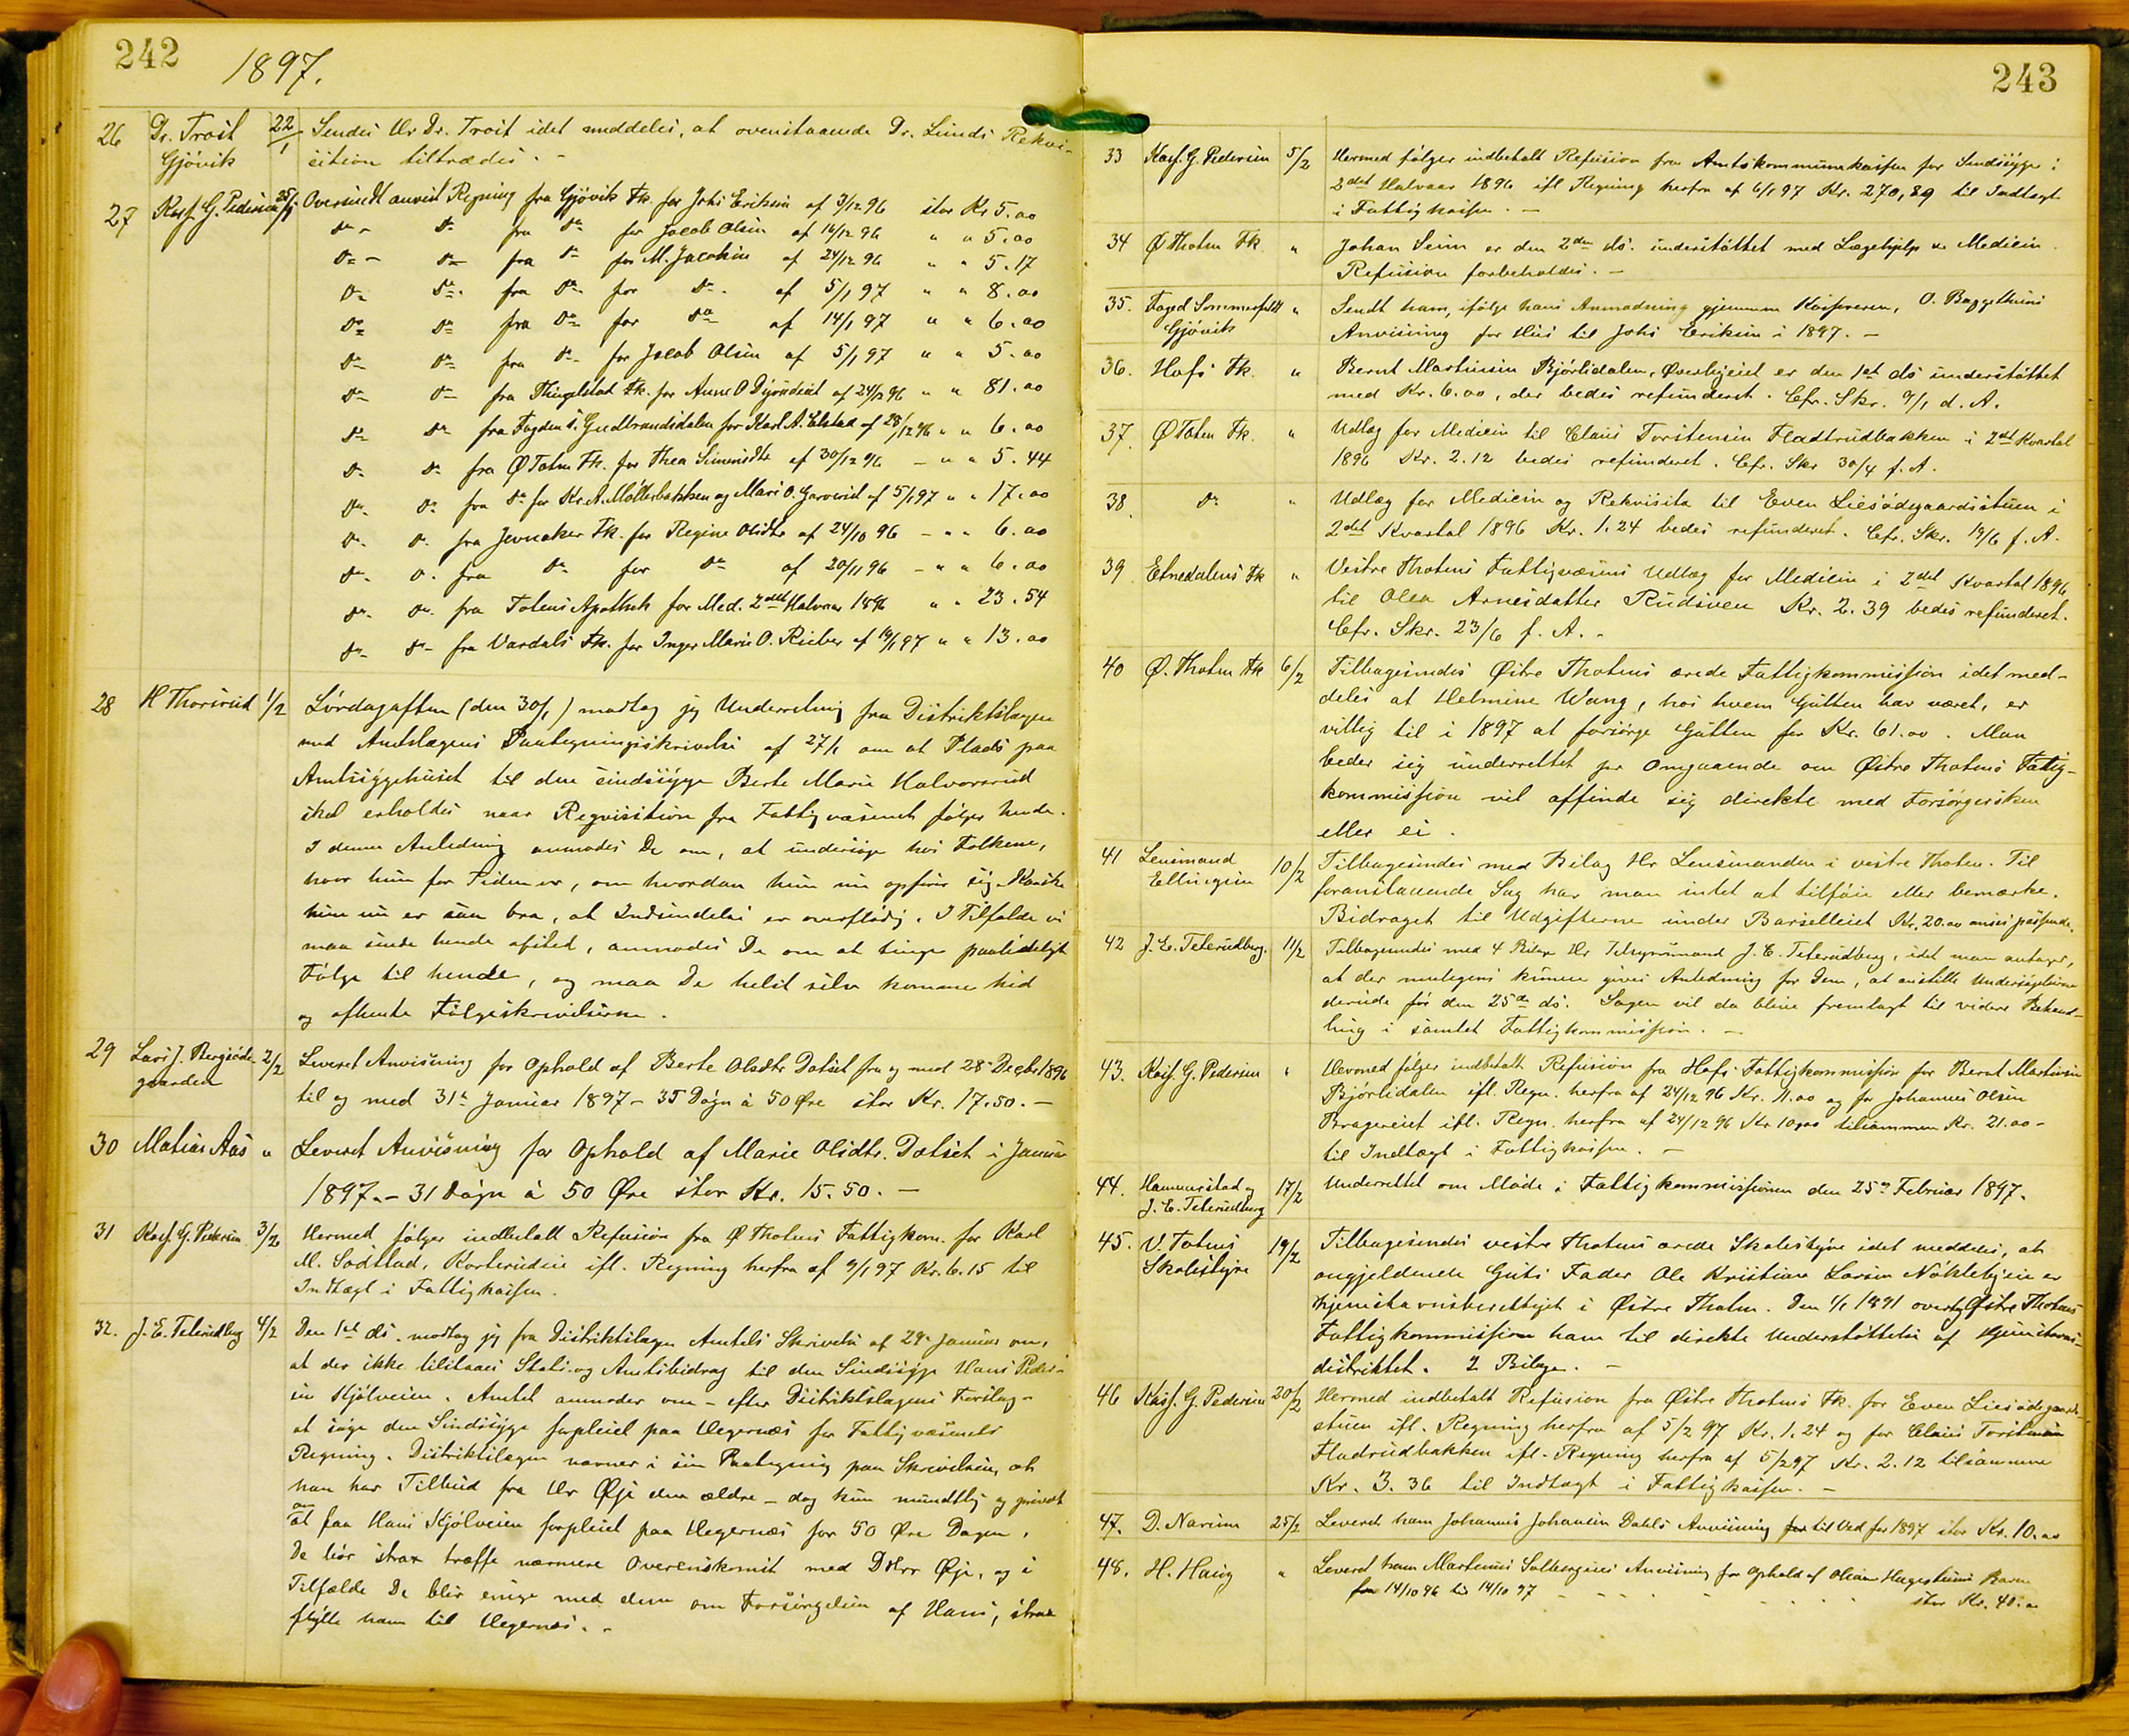 242
1897.
26 Dr. Trost 22/1 Sendes Hr Dr. Trost idet meddeles, at ovenstaaende Dr. Lunds Rekvi-
Gjövik sition tiltrædes. -
27 Kasf. G. Pedersen 25/1 Oversendt anvist Regning fra Gjövik Fk. for Johs Eriksen af 9/12 96 stor Kr 5.00
do - do fra do for Jacob Olsen af 16/12 96 " " 5.00
do - do fra do for M. Jacobsen af 24/12 96 " " 5.17
do do fra do for do af 5/1 97 " " 8.00
do do fra do for do af 14/1 97 " " 6.00
do do fra do for Jacob Olsen af 5/1 97 " " 5.00
do do fra Thingelstad Fk. for Anne O af 24/12 96 " " 81.00
do do fra Fogden s. Gudbrandsdalen for Karl A. Elstad af 28/12 96 " " 6.00
do do fra Ø Toten Fk. for Thea Simensdtr af 30/12 96 - " " 5.44
do do fra do for Kr. A. Möllerbakken og Mari O. af 5/1 97 " " 17.00
do do fra Jevnaker Fk. for Regine Olsdtr af 24/10 96 - " " 6.00
do do fra do for do af 20/11 96 - " " 6.00
do do fra Totens Apothek for Med. 2det Halvaar 1896 " " 23.54
do do fra Vardals Fk. for Inger Marie O. Rieber af 19/1 97 " " 13.00
28 H Thorsrud 1/2 Lördagaften (den 30/1) modtog jeg Underretning fra Distriktslægen
med Amtslægens Paategningsskrivelse af 27/1 om at Plads paa
Amtssygehuset til den sindssyge Berte Marie Halvorsrud
skal erholdes naar Reqvisition fra Fattigvæsenet følger hende.
I denne Anledning anmodes De om, at undersøge hos Folkene,
hvor hun for Tiden er, om hvordan hun nu opförer sig. Kanske
hun nu er saa bra, at Indsendelse er overflødig. I Tilfælde vi
maa sende hende afsted, anmodes De om at tinge paalideligt
Følge til hende, og maa De helst selv komme hid
og afhente Følgeskrivelserne.
29 Lars J. Bergsöde- 2/2 Leveret Anvisning for Ophold af Berte Olsdtr Dotset fra og med 28de Decbr 1896
gaarden til og med 31te Januar 1897 - 35 Døgn à 50 Øre stor Kr. 17.50. -
30 Matias Aas " Leveret Anvisning for Ophold af Marie Olsdtr. Dotset i Januar
1897. - 31 Døgn à 50 Øre stor Kr. 15.50. -
31 Kasf. G. Pedersen 3/2 Hermed følger indbetalt Refusion fra Ø Thotens Fattigkom. for Karl
M. Sodstad, ifl. Regning herfra af 9/1 97 Kr. 6.15 til
Indtægt i Fattigkassen.
32. J. E. Teterudberg 4/2 Den 1ste ds. modtog jeg fra Distriktslægen Amtets Skrivelse af 29de Januar om,
at der ikke tilstaaes Stats- og Amtsbidrag til den Sindssyge Hans Peder-
sen Kjölveien. Amtet anmoder om - efter Distriktslægens Forslag -
at søge den Sindssyge forpleiet paa Hegernæs for Fattigvæsenets
Regning. Distriktslægen nævner i sin Paategning paa Skrivelsen, at
han har Tilbud fra Hr Øje den ældre - dog kun mundtlig og privat
om
at faa Hans Kjölveien forpleiet paa Hegernæs for 50 Øre Dagen.
De bør strax træffe nærmere Overenskomst med DHrr Øje, og i
Tilfælde De blir enige med dem om Forsörgelsen af Hans, strax
flytte ham til Hegernæs. -
243
33 Kasf. G. Pedersen 5/2 Hermed følger indbetalt Refusion fra Amtskommunekassen for Sindssyge i
2det Halvaar 1896 ifl Regning herfra af 6/1 97 Kr. 270,89 til Indtægt
i Fattigkassen. -
34 Ø Thoten Fk. " Johan Seim er den 2den ds. understøttet med Lægehjelp & Medicin.
Refusion forbeholdes. -
35. Foged Sommerfeldt " Sendt ham, ifølge hans Anmodning gjennem Kasfereren, O. Baggethuns
Gjövik Anvisning for Hus til Johs Eriksen i 1897. -
36. Hofs Fk. " Bernt Martinsen Bjørlidalen, Øverbyeiet er den 1st ds understøttet
med Kr. 6.00, der bedes refunderet. Cfr. Skr. 9/1 d. A.
37. Ø Toten Fk. " Udlæg for Medicin til Claus Torstensen Fladtrudbakken i 2det Kvartal
1896 Kr. 2.12 bedes refunderet. Cfr. Skr 30/4 f. A.
38. do " Udlæg for Medicin og Rekvisita til Even Liesødegaardsstuen i
2det Kvartal 1896 Kr. 1.24 bedes refunderet. Cfr. Skr. 19/6 f. A.
39 Etnedalens Fk " Vestre Thotens Fattigvæsens Udlæg for Medicin i 2det Kvartal 1896
til Olea Arnesdatter Rudsveen Kr. 2.39 bedes refunderet.
Cfr. Skr. 23/6 f. A. -
40 Ø. Thoten Fk 6/2 Tilbagesendes Østre Thotens ærede Fattigkommission idet med-
deles at Helmine Wang, hos hvem Gutten har været, er
villig til i 1897 at forsørge Gutten for Kr. 61.00. Man
beder sig underrettet pr Omgaaende om Østre Thotens Fattig-
kommission vil affinde sig direkte med Forsørgersken
eller ei.
41 Lensmand 10/2 Tilbagesendes med Bilag Hr Lensmanden i vestre Thoten. Til
Ellingsen foranstaaende Sag har man intet at tilføie eller bemærke.
Bidraget til Udgifterne under Barselleiet Kr. 20.00 ansees passende.
42 J. E. Teterudberg. 11/2 Tilbagesendes med 4 Bilage Hr Tilsynsmand J. E. Teterudberg, idet man antager,
at der muligens kunne gives Anledning for Dem, at anstille Undersøgelserne
derude før den 25de ds. Sagen vil da blive fremlagt til videre Behand-
ling i samlet Fattigkommission. -
43. Kasf. G. Pedersen " Hermed følger indbetalt Refusion fra Hofs Fattigkommission for Bernt Martinsen
Bjørlidalen ifl. Regn. herfra af 24/12 96 Kr. 11.00 og for Johannes Olsen
Brageeiet ifl. Regn. herfra af 24/12 96 Kr 10,00 tilsammen Kr. 21.00 -
til Indtægt i Fattigkassen. -
44. Hammerstad og 17/2 Underrettet om Møde i Fattigkommissionen den 25de Februar 1897.
J. E. Teterudberg
45. V. Totens 19/2 Tilbagesendes vestre Thotens ærede Skolestyre idet meddeles, at
Skolestyre angjeldende Guts Fader Ole Kristian Larsen Nøklebyeie er
hjemstavnsberettiget i Østre Thoten. Den 1/1 1891 overtog Østre Thotens
Fattigkommission ham til direkte Understøttelse af Hjemstavns-
distriktet. 2 Bilage. -
46 Kasf. G. Pedersen 20/2 Hermed indbetalt Refusion fra Østre Thotens Fk. for Even Liesødegaards-
stuen ifl. Regning herfra af 5/2 97 Kr. 1.24 og for Claus Torstensen
Fladrudbakken ifl. Regning herfra af 5/2 97 Kr. 2.12 tilsammen
Kr. 3.36 til Indtægt i Fattigkassen. -
47. D. Narum 25/2 Leveret ham Johannes Johansen Dahls Anvisning for til Ved for 1897 stor Kr. 10.00
48. H. Haug " Leveret ham Martinus Anvisning for Ophold af Oleane Hagestuens Barn
fra 14/10 96 til 14/10 97 - - - - - - - stor Kr. 40.00